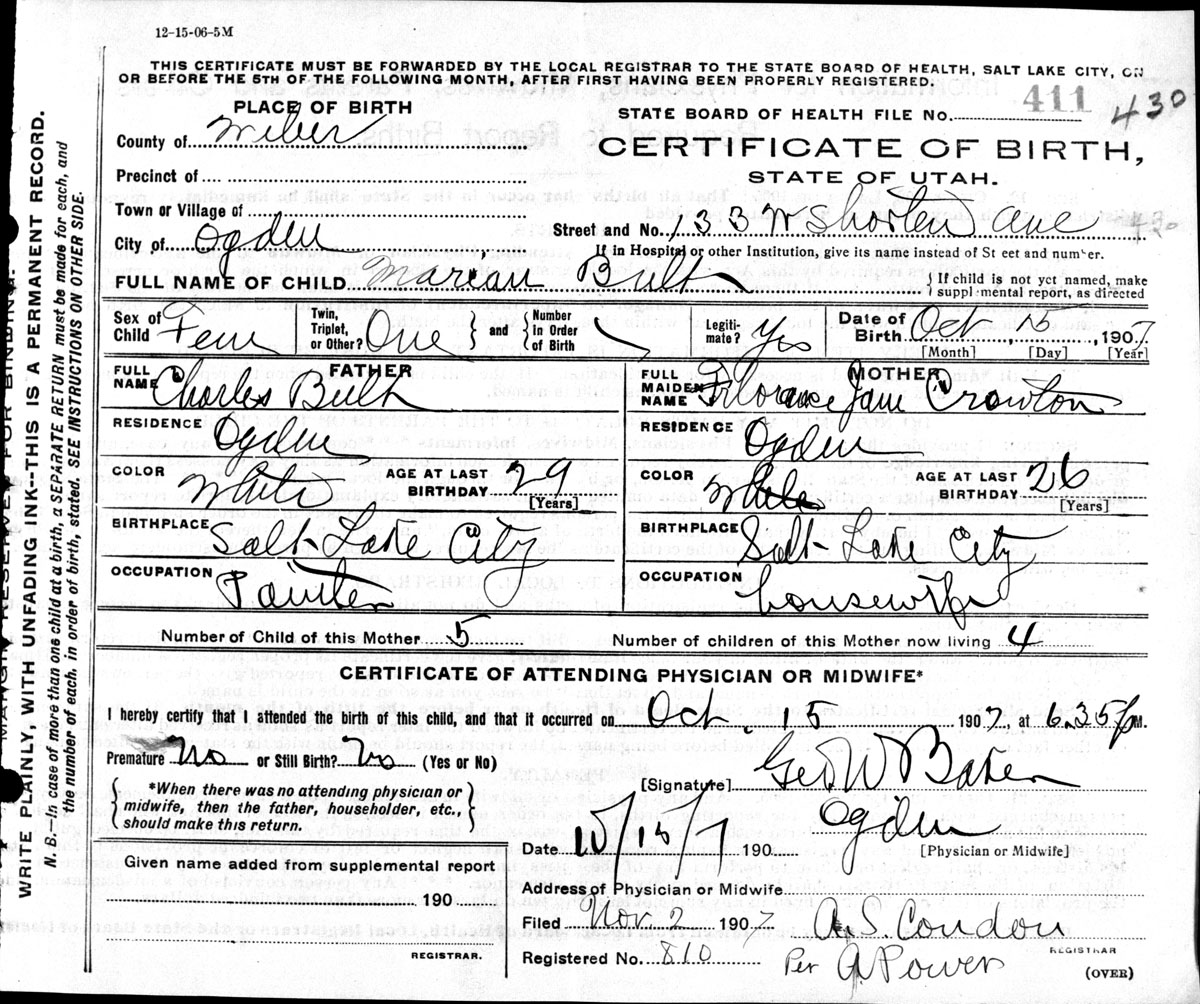 12-15-06-5M
THIS CERTIFICATE MUST BE FORWARDED BY THE LOCAL REGISTRAR TO THE STATE BOARD OF HEALTH, SALT LAKE CITY, ON
OR BEFORE THE 5TH OF THE FOLLOWING MONTH, AFTER FIRST HAVING BEEN PROPERLY REGISTERED.
PLACE OF BIRTH
STATE BOARD OF HEALTH FILE No. 411 430
County of Weber
CERTIFICATE OF BIRTH,
STATE OF UTAH.
Precinct of
Town or Village of
City of Ogden
Street and No. Ave 430
If in Hospital or other Institution, give its name instead of St eet and number.
FULL NAME OF CHILD. Marian Bult
{If child is not yet named, make
supplemental report, as directed
Sex of Child Fem Twin, Triplet, or Other? One } and { Number in Order of Birth Legiti-mate? Yes Date of Birth Oct 15, 1907
[Month] [Day] [Year]
FATHER
FULL NAME Charles Bult
MOTHER
FULL MAIDEN NAME Jane Crowton
RESIDENCE Ogden
RESIDENCE Ogden
COLOR White AGE AT LAST BIRTHDAY 29 [Years]
COLOR White AGE AT LAST BIRTHDAY 26 [Years]
BIRTHPLACE Salt Lake City
BIRTHPLACE Salt Lake City
OCCUPATION Painter
OCCUPATION housewife
Number of Child of this Mother 5 Number of children of this Mother now living 4
CERTIFICATE OF ATTENDING PHYSICIAN OR MIDWIFE*
I hereby certify that I attended the birth of this child, and that it occurred on Oct 15 1907 at 6.35 P M.
Premature No or Still Birth? No (Yes or No)
[Signature] Geo W Baker
*When there was no attending physician or
midwife, then the father, householder, etc.,
should make this return.
Ogden
Date 190
[Physician or Midwife]
Given name added from supplemental report
190
REGISTRAR.
Address of Physician or Midwife
Filed Nov. 2 1907 A.S. Condon
REGISTRAR
Registered No. 810 Per A. Power
(OVER)
MARGIN RESERVED FOR BINDING.
WRITE PLAINLY, WITH UNFADING INK--THIS IS A PERMANENT RECORD.
N. B.—In case of more than one child at a birth, a SEPARATE RETURN must be made for each, and
the number of each, in order of birth, stated. SEE INSTRUCTIONS ON OTHER SIDE.